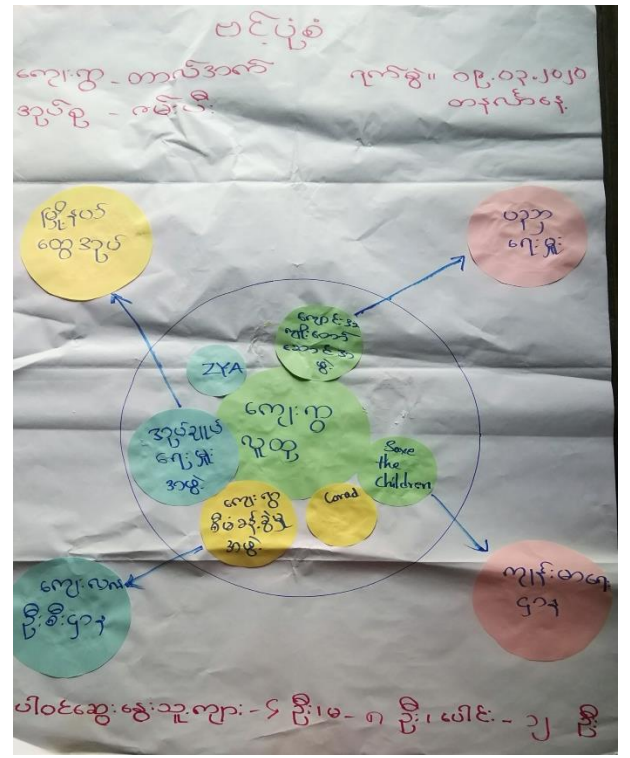 ဗင်ပုံစံ
ကျေးရွာ - တာလ်အက် ရက်စွဲ။ ၀၉.၀၃.၂၀၂၀
အုပ်စု - ဇမ်းပီး တနင်္လာနေ့
မြို့နယ်
ထွေအုပ်
ပညာ
ရေးမှူး
ကျောင်းအ
ကျိုးတော်
ဆောင်အ
ဖွဲ့
ZYA
ကျေးရွာ
လူထု
အုပ်ချုပ်
ရေးမှူး
အဖွဲ့
Save
the
Children
ကျေးရွာ
စီမံခန့်ခွဲမှု
အဖွဲ့
Corad
ကျေးလက်
ဦးစီးဌာန
ကျန်းမာရေး
ဌာန
ပါဝင်ဆွေးနွေးသူ ကျား - ၄ ဦး၊ မ - ၈ ဦး၊ ပေါင်း - ၁၂ ဦး